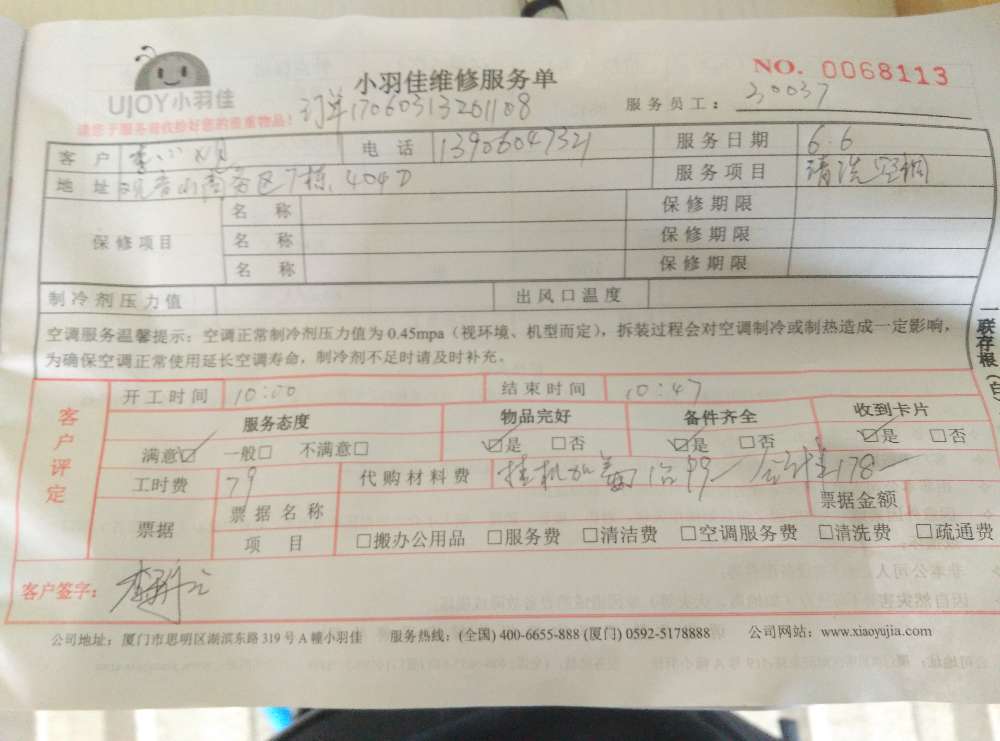 小羽佳维修服务单
NO. 0068113
UJOY小羽佳
订单17060313201108
服务员工： 30037
请您于服务前收捡好您的贵重物品！
客户 电话 13906047321 服务日期 6.6
地址 观音山商务区7栋404D 服务项目 清洗空调
保修项目 名称 保修期限
名称 保修期限
名称 保修期限
制冷剂压力值 出风口温度
空调服务温馨提示：空调正常制冷剂压力值为 0.45mpa（视环境、机型而定），拆装过程会对空调制冷或制热造成一定影响，
为确保空调正常使用延长空调寿命，制冷剂不足时请及时补充。
一联存根
客户评定
开工时间 10:00 结束时间 10:47
服务态度 物品完好 备件齐全 收到卡片
满意☑ 一般□ 不满意□ ☑是 □否 ☑是 □否 ☑是 □否
工时费 79 代购材料费 挂机加 99 合计 178
票据 票据名称 票据金额
项目 □搬办公用品 □服务费 □清洁费 □空调服务费 □清洗费 □疏通费
客户签字：
公司地址：厦门市思明区湖滨东路 319 号 A 幢小羽佳 服务热线：(全国) 400-6655-888 (厦门) 0592-5178888 公司网站：www.xiaoyujia.com